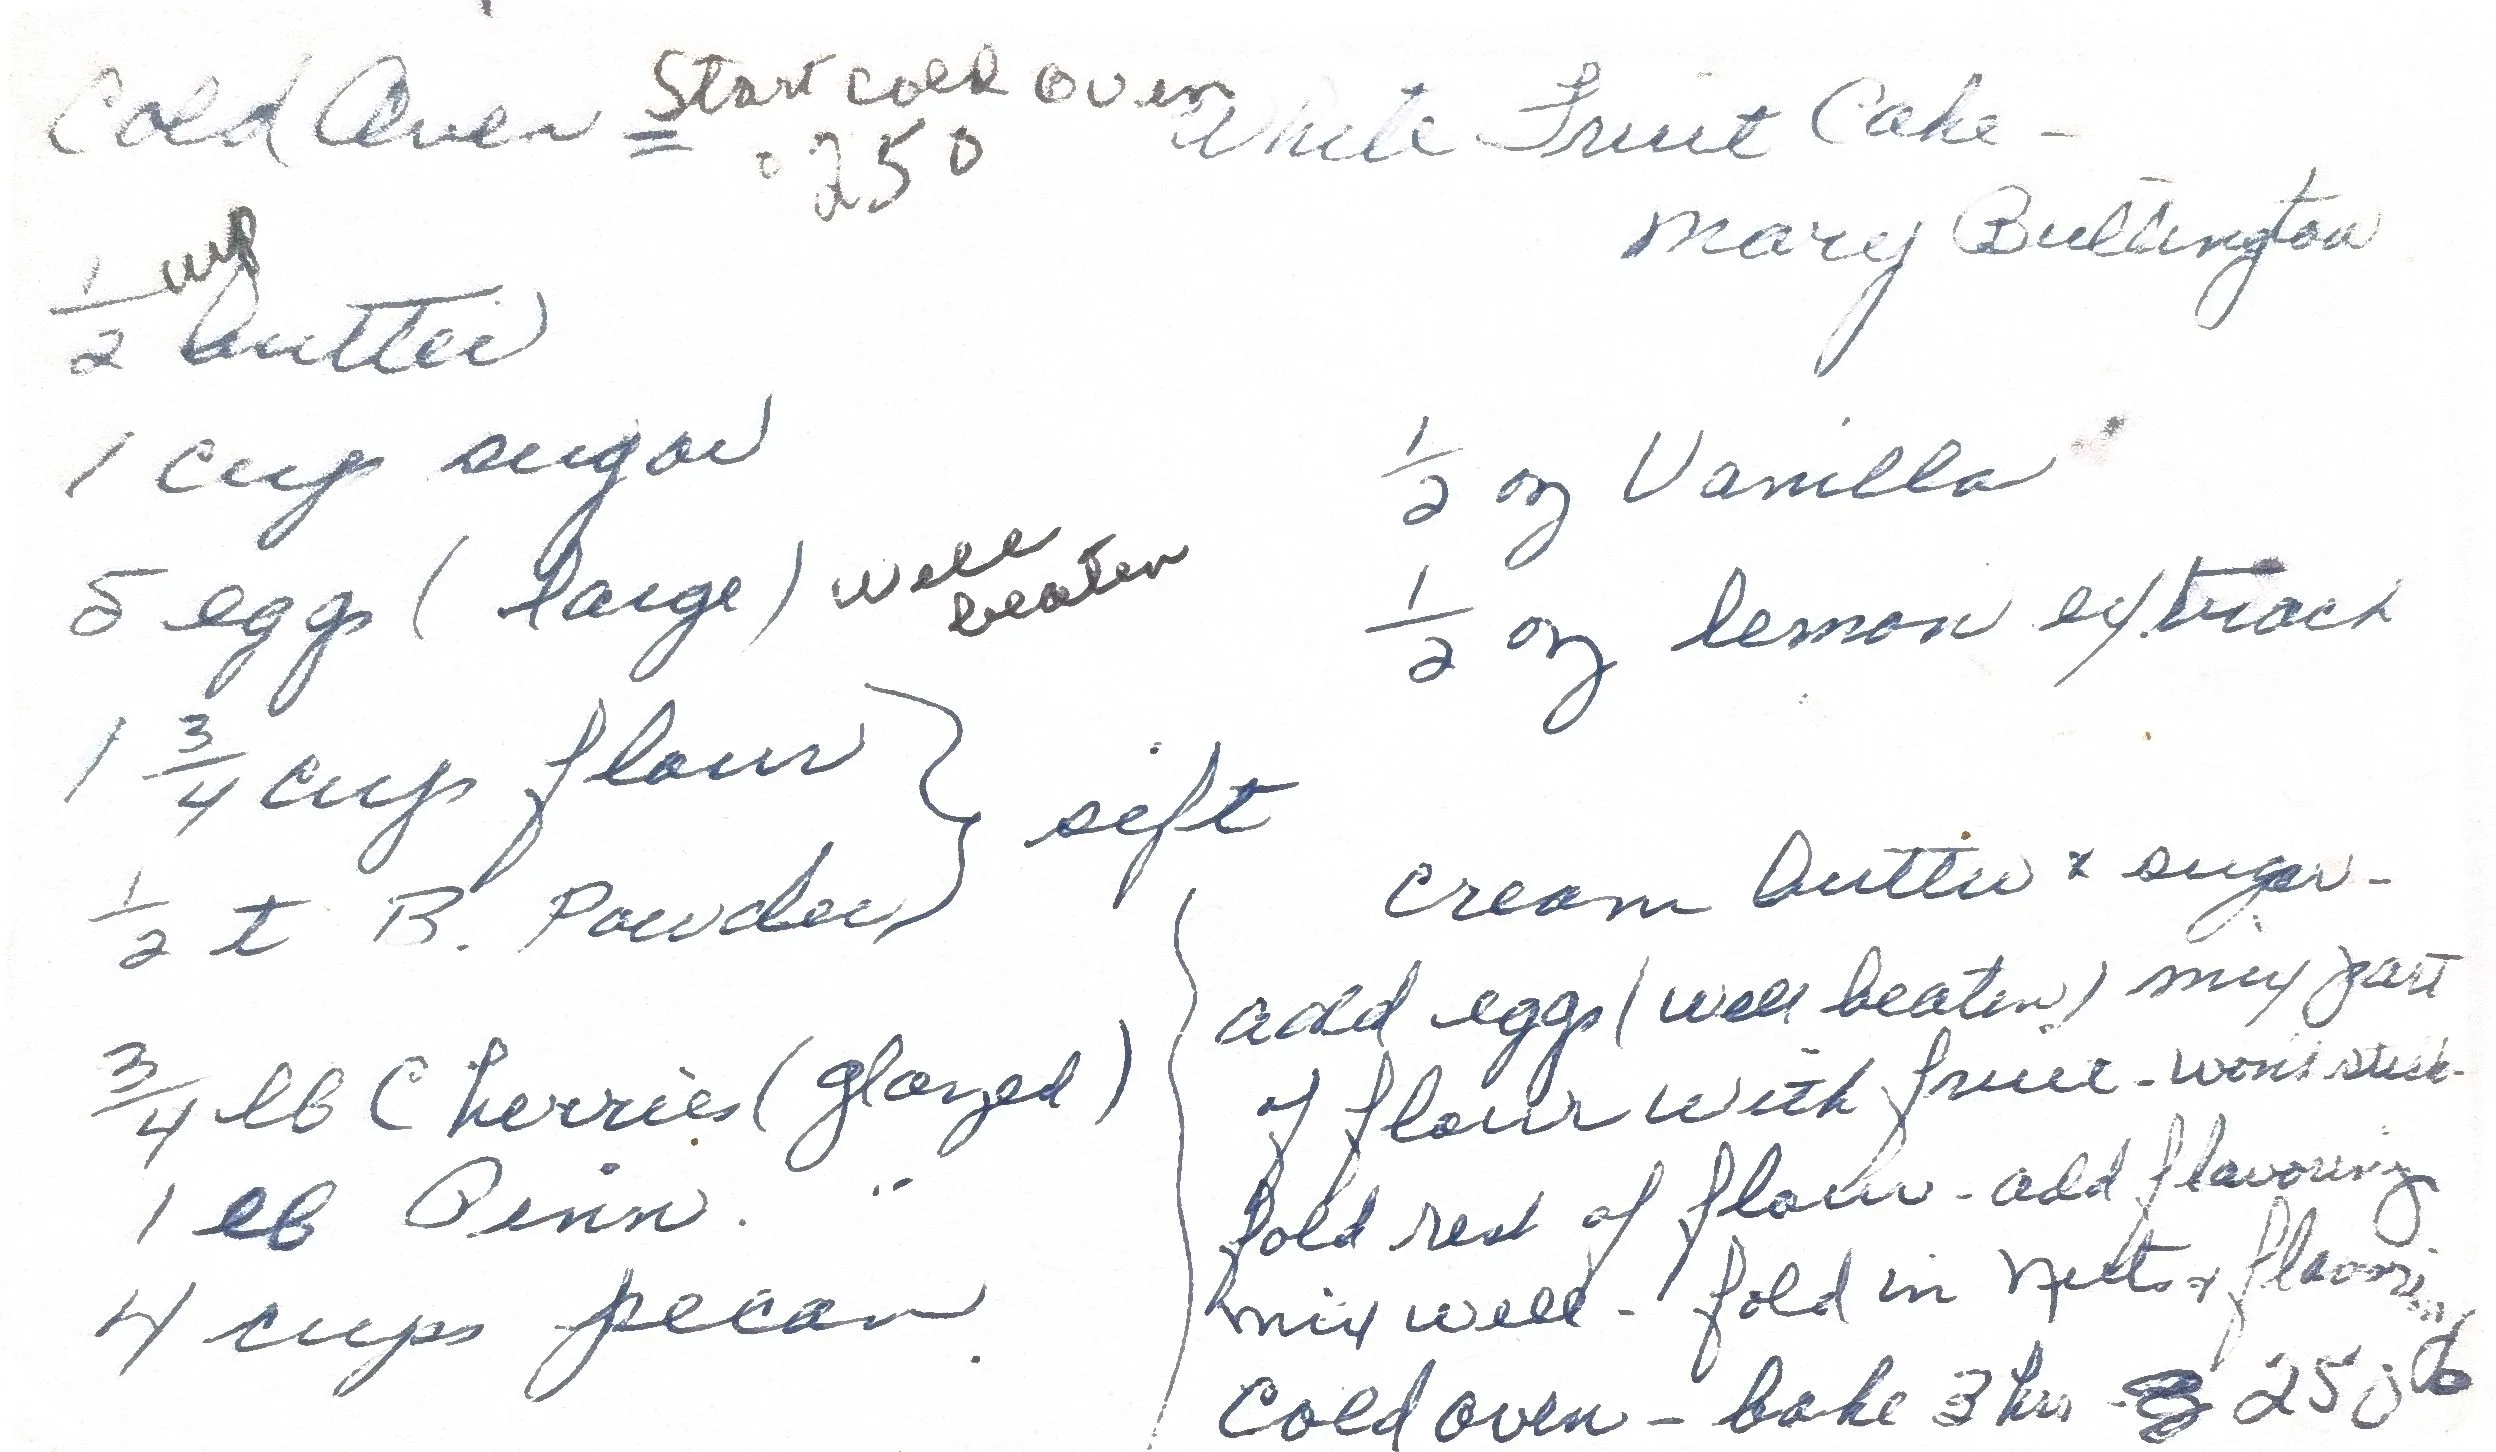 Cold Oven = Start cold oven
250
White Fruit Cake -
Mary
1/2 cup butter
1 cup sugar
5 eggs (large) well
beaten
1 3/4 cup flour
1/2 t B. Powder
} sift
3/4 lb Cherries (glazed)
1 lb Pinn. "
4 cups pecan
1/2 oz Vanilla
1/2 oz lemon extract
cream butter & sugar -
add eggs (well beaten) mix part
of flour with fruit - won't stick -
fold rest of flour - add flavoring
mix well - fold in nuts & flavoring
cold oven - bake 3 hrs - 250°